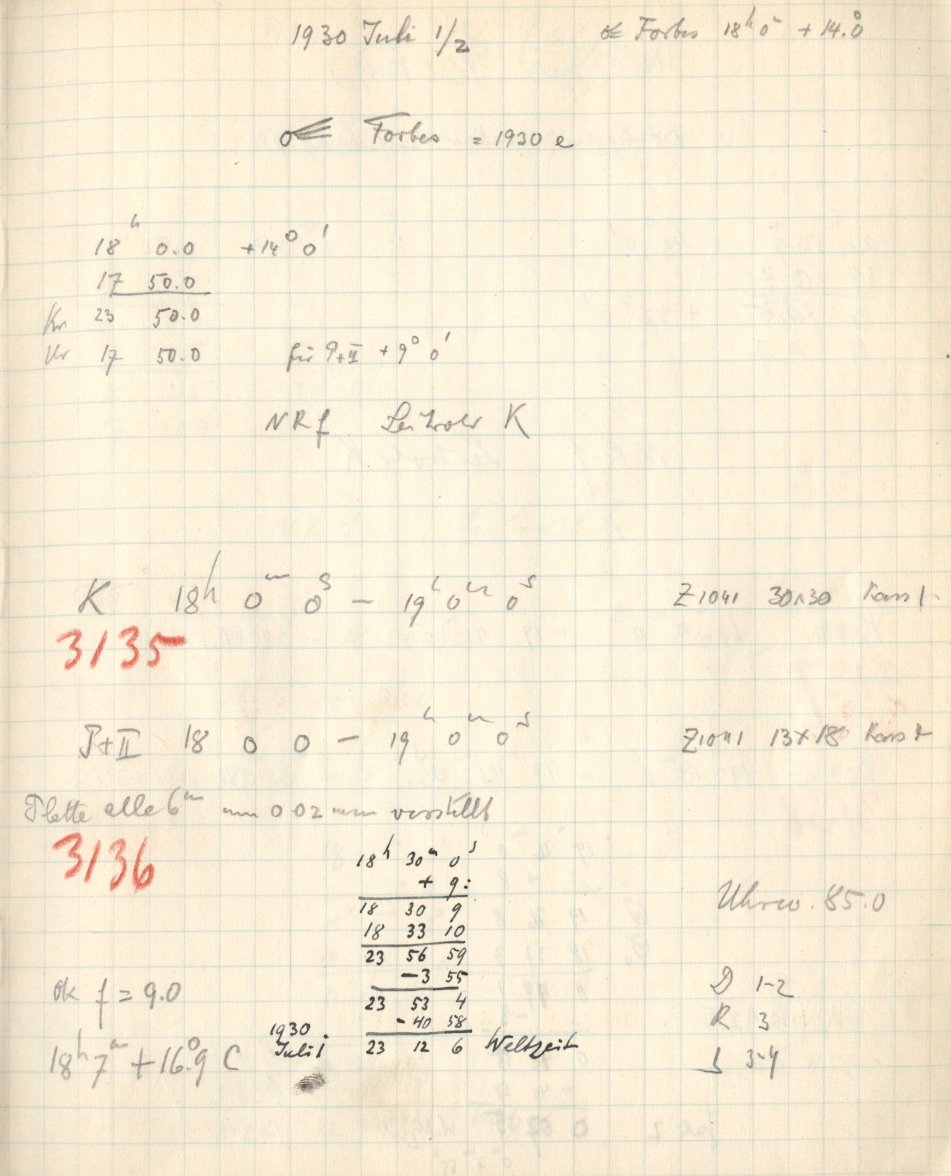 1930 Juli 1/2 ☄ Forbes 18ʰ 0ᵐ + 14.°0
☄ Forbes = 1930 e
18ʰ 0.0 +14° 0'
17 50.0
Kr 23 50.0
Ur 17 50.0 für P+II + 9° 0'
NRf Leitrohr K
K 18ʰ 0ᵐ 0ˢ – 19ʰ 0ᵐ 0ˢ Z1041 30x30 Kass 1
3135
P+II 18 0 0 – 19ʰ 0ᵐ 0ˢ Z1041 13x18 Kass
Platte alle 6ᵐ um 0 02 mm verstellt
3136
18ʰ 30ᵐ 0ˢ
+ 9:
18 30 9
18 33 10
23 56 59
-3 55
23 53 4
-40 58
1930 Juli 1 23 12 6 Weltzeit
Uhrw. 85.0
Ok f = 9.0
18ʰ 7ᵐ +16.°9 C
D 1-2
R 3
S 3-4